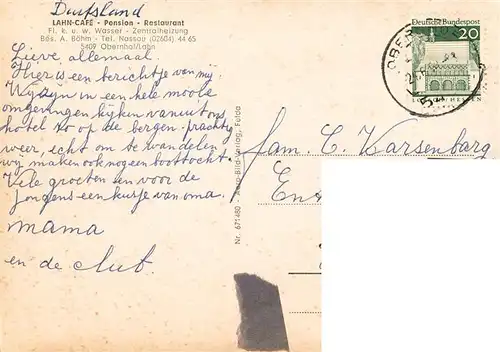 Duitsland
LAHN-CAFÉ • Pension • Restaurant
Fl. k. u. w. Wasser - Zentralheizung
Bes. A. Böhm - Tel. Nassau (02604) 44 65
5409 Obernhof/Lahn
Lieve allemaal.
Hier is een berichtje van mij
Wij zijn in een hele mooie
omgeving en kijken vanuit ons
hotel zo op de bergen. prachtig
weer, echt om te wandelen
wij maken ook nog een boottocht
Vele groeten en voor de
jongens een kusje van oma.
mama
en de club.
Nr. 671480 - Auto-Bild-Verlag, Fulda
Deutsche Bundespost
20
LORSCH/HESSEN
OBERNHOF
fam. C. Karsenbarg